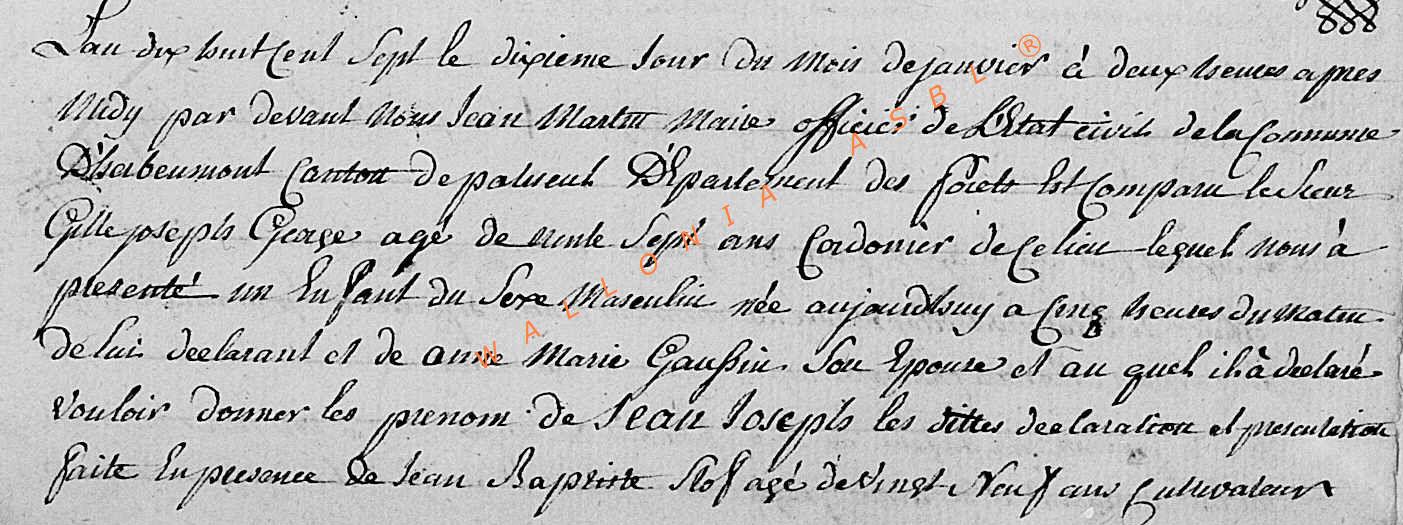 L'an dix huit Cent Sept le dixieme Jour du Mois de janvier à deux heures apres
Midy par devant Nous Jean Martin Maire officier de L'Etat civil de la Commune
D'herbeumont Canton de paliseul D'Epartement des forets Est Comparu le Sieur
Gille joseph George agé de trente Sept ans Cordonier de Ce lieu lequel nous à
presenté un Enfant du Sexe Masculin née aujourdhuy a Cinq heures du matin
de lui declarant et de anne Marie Gaussin Son Epouse et au quel il à declaré
vouloir donner les prenom de Jean Joseph les dittes declaration et presentation
faite En presence de Jean Baptiste agé de vingt Neuf ans Cultivateur
WALLONIA ASBL ®